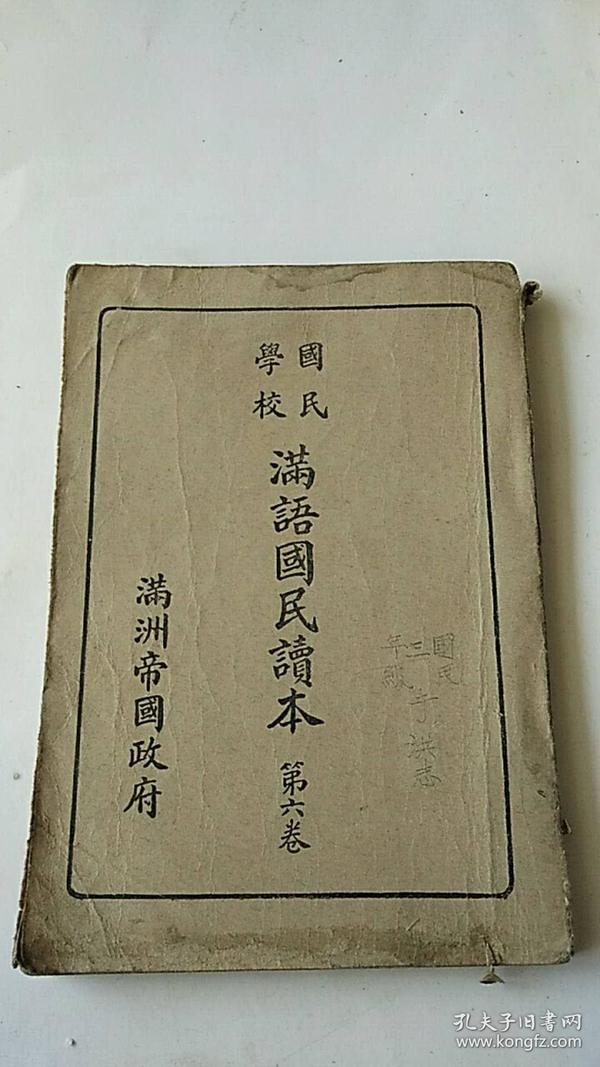 國民
學校
滿語國民讀本 第六卷
滿洲帝國政府
國民
三
年級
于洪志
孔夫子旧书网
www.kongfz.com